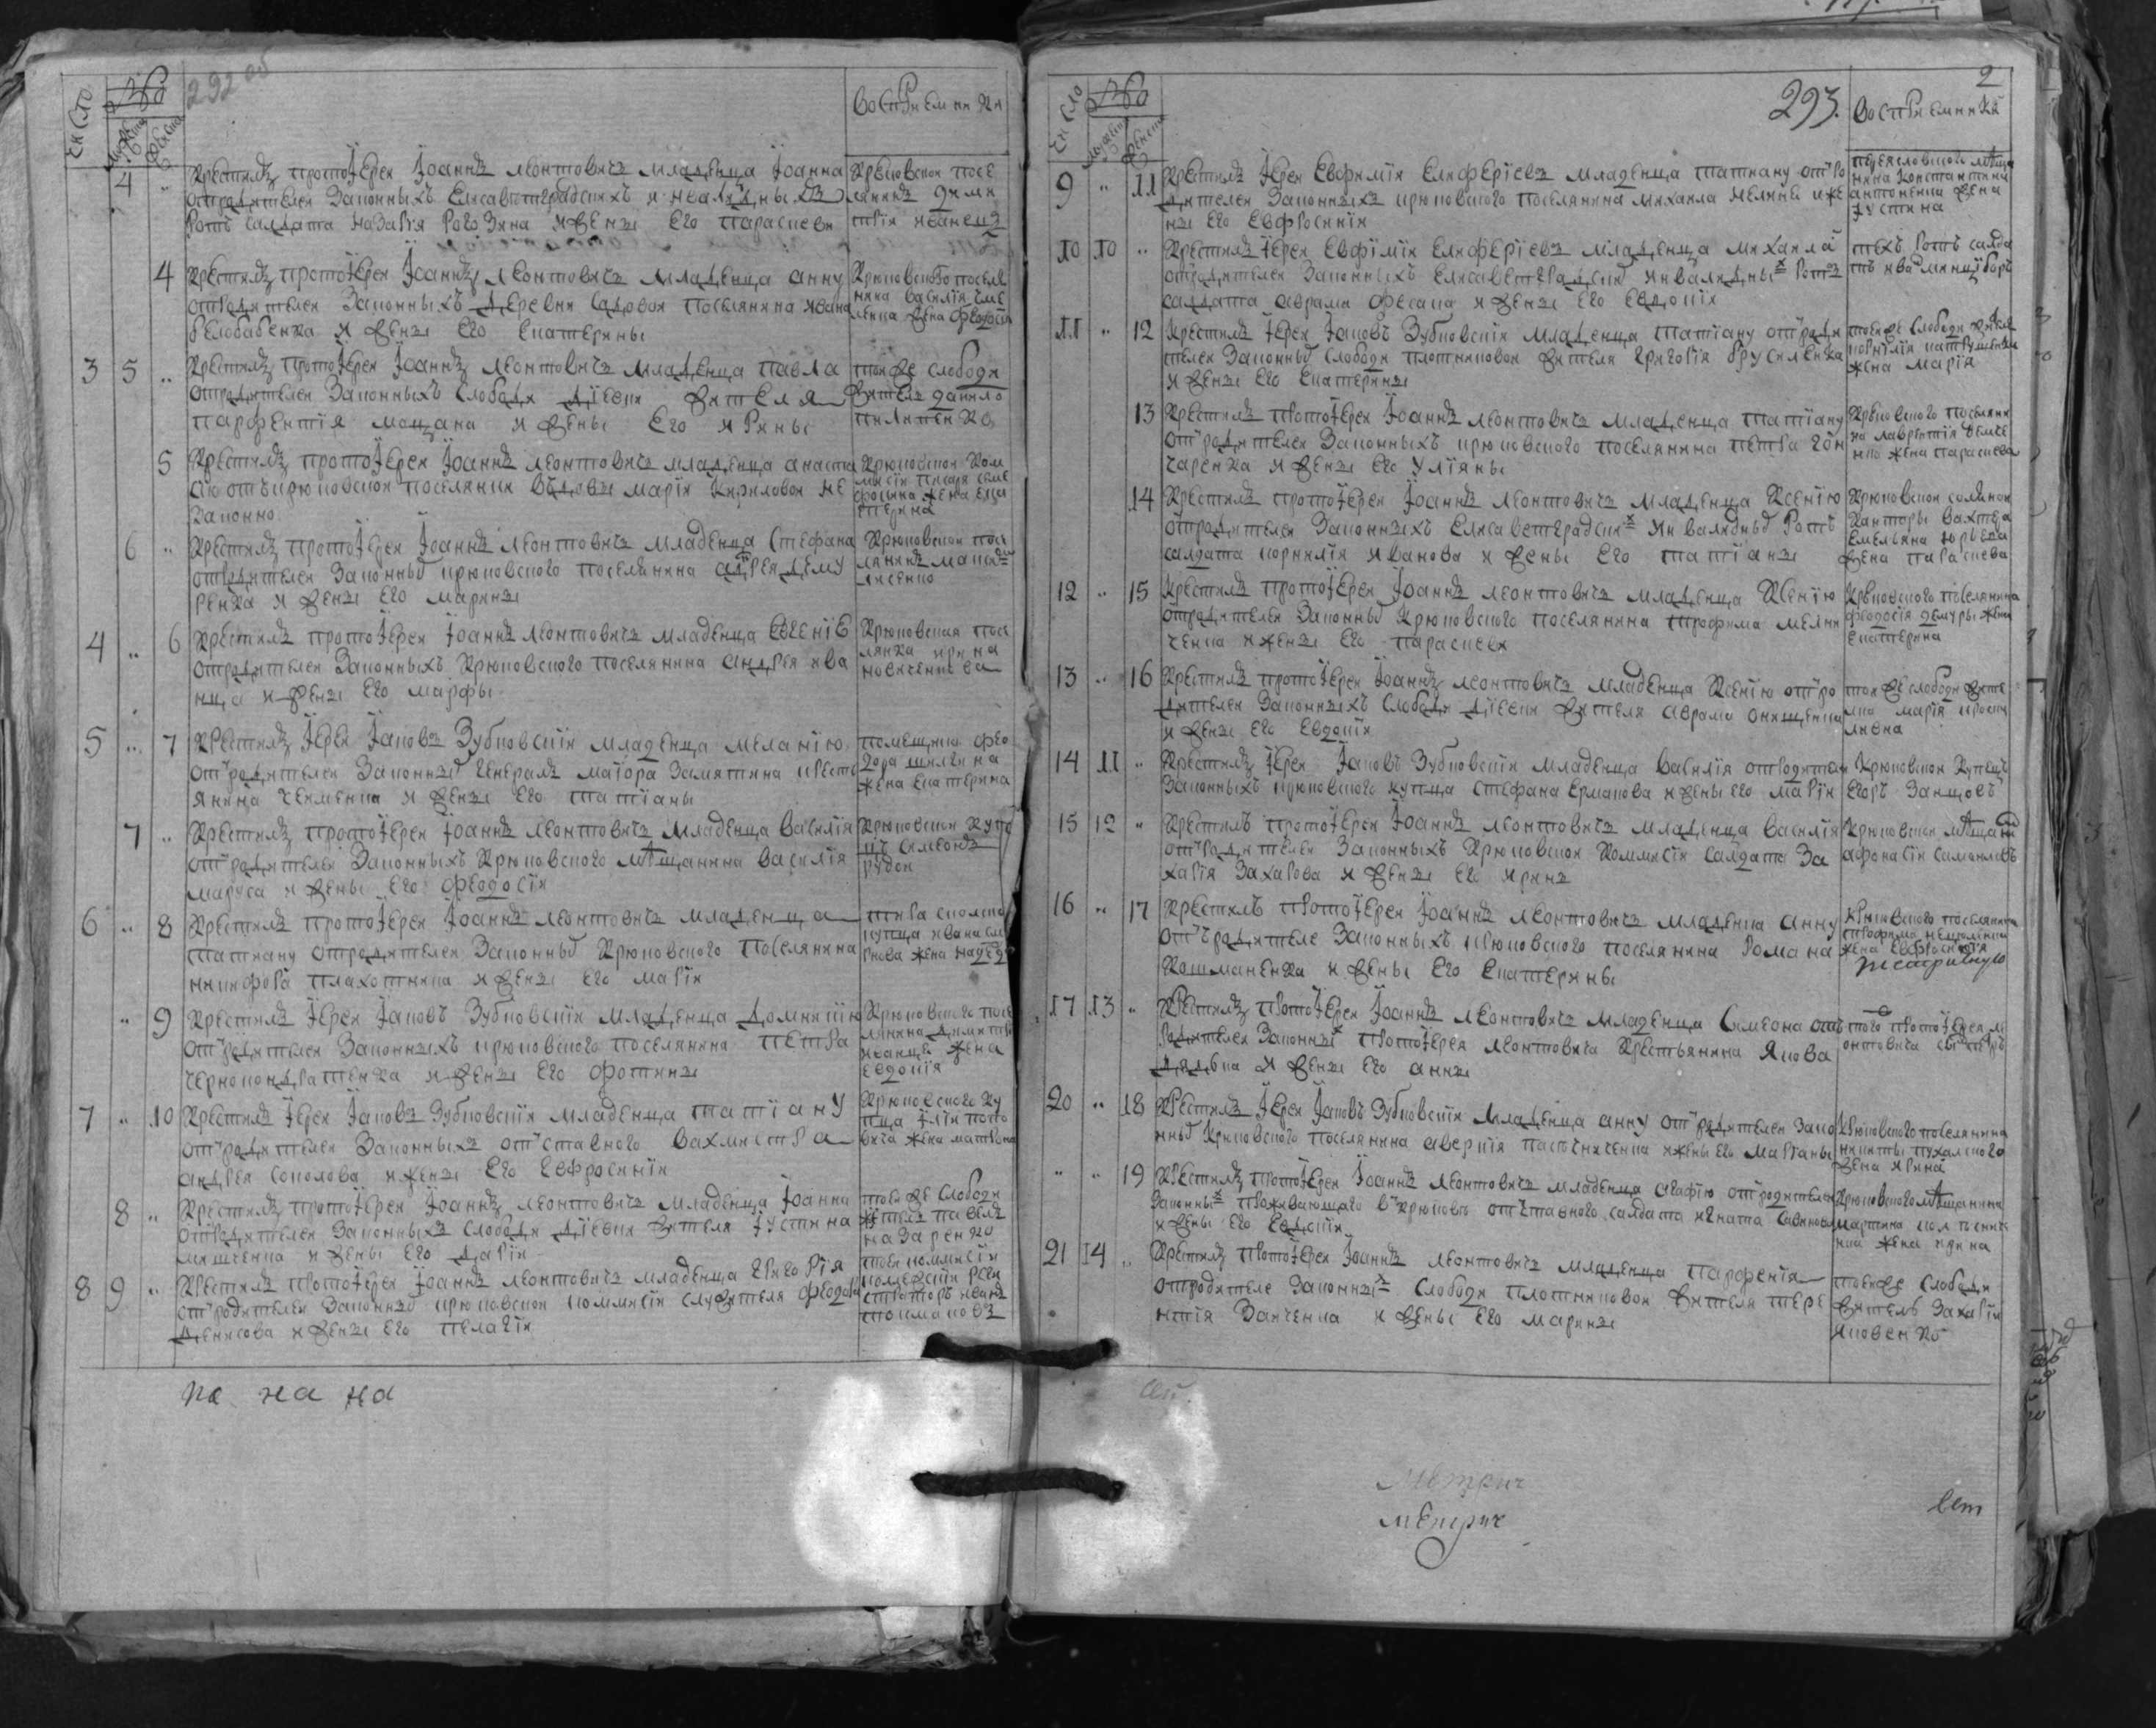 292 об
число
мужеска
женска
восприемники
4 „ Крестилъ протоіерей Іоаннъ леонтовичъ младенца Іоанна
отродителей Законныхъ Елисаветградскихъ инвалидныхъ
Ротъ салдата наЗарія РогоЗина и жены Его Параскеви
Крюковской посе
лянинъ дими
трій иванецъ
4 Крестилъ протоіерей Іоаннъ леонтовичъ младенца анну
отродителей Законныхъ деревни садовой поселянина ивана
белобабенка и жены Его Екатерины
Крюковского поселя
нина василія
жена феодосія
3 5 „ Крестилъ протоіерей Іоаннъ леонтовичъ младенца павла
отродителей Законныхъ слободи діевки жителя
парфентія мацана и жены Его ирины
тойже слободи
житель данило
пилипенко
5 Крестилъ протоіерей Іоаннъ леонтовичъ младенца анаста
сію отъ крюковской поселянки вдовы марія кириловой не
Законно
Крюковской ком
мисіи писаря
жена Ека
терина
6 „ Крестилъ протоіерей Іоаннъ леонтовичъ младенца Стефана
отродителей Законныхъ крюковского поселянина андрея дему
ренка и жены Его марины
Крюковской посе
лянинъ
4 „ 6 Крестилъ протоіерей Іоаннъ леонтовичъ младенца Евгенію
отродителей Законныхъ Крюковского поселянина андрея ива
нца и жены Его марфы
Крюковская посе
лянка ирина
5 „ 7 Крестилъ Іерей Іаковъ Зубковскій младенца меланію
отродителей Законныхъ генералъ маіора Замятина крестя
янина чехменка и жены Его татіаны
помещика фео
дора
жена екатерина
7 „ Крестилъ протоіерей Іоаннъ леонтовичъ младенца василія
отродителей Законныхъ Крюковского мѣщанина василія
маруса и жены Его феодосіи
Крюковской купе
цъ симеонъ
рудой
6 „ 8 Крестилъ протоіерей Іоаннъ леонтовичъ младенца
татиану отродителей Законныхъ Крюковского поселянина
никифора плахотника и жены Его маріи
купца ивана
жена
„ 9 Крестилъ Іерей Іаковъ Зубковскій младенца домникію
отродителей Законныхъ крюковского поселянина петра
чернокондратенка и жены Его фотины
Крюковского посе
лянина димитрія
иванца жена
евдокія
7 „ 10 Крестилъ Іерей Іаковъ Зубковскій младенца татіану
отродителей Законныхъ отставного вахмистра
андрея соколова и жены Его Евфросиніи
Крюковского ку
пца іліи
жена матрона
8 „ Крестилъ протоіерей Іоаннъ леонтовичъ младенца Іоанна
отродителей Законныхъ слободи діевки жителя іустина
мишченка и жены Его даріи
тойже слободи
житель павелъ
наЗаренко
8 9 „ Крестилъ протоіерей Іоаннъ леонтовичъ младенца григорія
отродителей Законныхъ крюковской коммисіи служителя феодора
денисова и жены Его пелагіи
той коммисіи
иванъ
толмаковъ
на на
293.
2
число
мужеска
женска
восприемники
9 „ 11 Крестилъ Іерей Евфимій Елиферіевъ младенца татиану отро
дителей Законныхъ крюковского поселянина михаила и же
ны Его Евфросиніи
переясловского мѣща
нина константина
антоненка жена
іустина
10 10 „ Крестилъ Іерей Евфимій Елиферіевъ младенца михаила
отродителей Законныхъ Елисаветградскихъ инвалидныхъ Ротъ
салдата аврама фесака и жены Его Евдокіи
техъ ротъ салда
тъ
11 „ 12 Крестилъ Іерей Іаковъ Зубковскій младенца татіану отроди
телей Законныхъ слободи плотниковой жителя григорія брусиленка
и жены Его Екатерины
тойже слободи жителя
корнилія
жена марія
13 Крестилъ протоіерей Іоаннъ леонтовичъ младенца татіану
отродителей Законныхъ крюковского поселянина петра гон
чаренка и жены Его Уліяны
Крюковского поселяни
на лаврентія
жена параскева
14 Крестилъ протоіерей Іоаннъ леонтовичъ младенца Ксенію
отродителей Законныхъ Елисаветградскихъ инвалидныхъ Ротъ
салдата корнилія иванова и жены Его татіаны
Крюковской соляной
Канторы вахтера
Емельяна юрьева
жена параскева
12 „ 15 Крестилъ протоіерей Іоаннъ леонтовичъ младенца Ксенію
отродителей Законныхъ Крюковского поселянина трофима мелни
ченка и жены Его параскеви
Крюковского поселянина
феодосія демуры жена
екатерина
13 „ 16 Крестилъ протоіерей Іоаннъ леонтовичъ младенца Ксенію отро
дителей Законныхъ слободи діевки жителя аврама онищенка
и жены Его Евдокіи
тойже слободи жите
лка марія
14 11 „ Крестилъ Іерей Іаковъ Зубковскій младенца василія отродителей
Законныхъ крюковского купца стефана Ермакова и жены Его маріи
Крюковской Купецъ
Егоръ Занцовъ
15 12 „ Крестилъ протоіерей Іоаннъ леонтовичъ младенца василія
отродителей Законныхъ Крюковской Коммисіи салдата За
харія Захарова и жены Его ирины
Крюковской мѣщанинъ
афонасій самойловъ
16 „ 17 Крестилъ протоіерей Іоаннъ леонтовичъ младенца анну
отъродителе Законныхъ крюковского поселянина романа
Кошманенка и жены Его Екатерины
Крюковского поселянина
трофима
жена Евфросинія
17 13 „ Крестилъ протоіерей Іоаннъ леонтовичъ младенца Симеона отъ
родителей Законныхъ протоіерея леонтовича крестьянина Якова
дядька и жены Его анны
того протоіерея ле
онтовича
20 „ 18 Крестилъ Іерей Іаковъ Зубковскій младенца анну отродителей Зако
нныхъ Крюковского поселянина аверкія пасѣчниченка и жены Его
Крюковского поселянина
никиты пухалского
жена ирина
„ „ 19 Крестилъ протоіерей Іоаннъ леонтовичъ младенца агафію отродителей
Законныхъ проживающаго вкрюковѣ отставного салдата игната
и жены Его Евдокіи
Крюковского мѣщанина
мартина
жена ирина
21 14 „ Крестилъ протоіерей Іоаннъ леонтовичъ младенца парфенія
отродителе Законныхъ слободи плотниковой жителя тере
нтія Занченка и жены Его марины
тойже слободи
житель Захарій
яковенко
Метрич
метрич